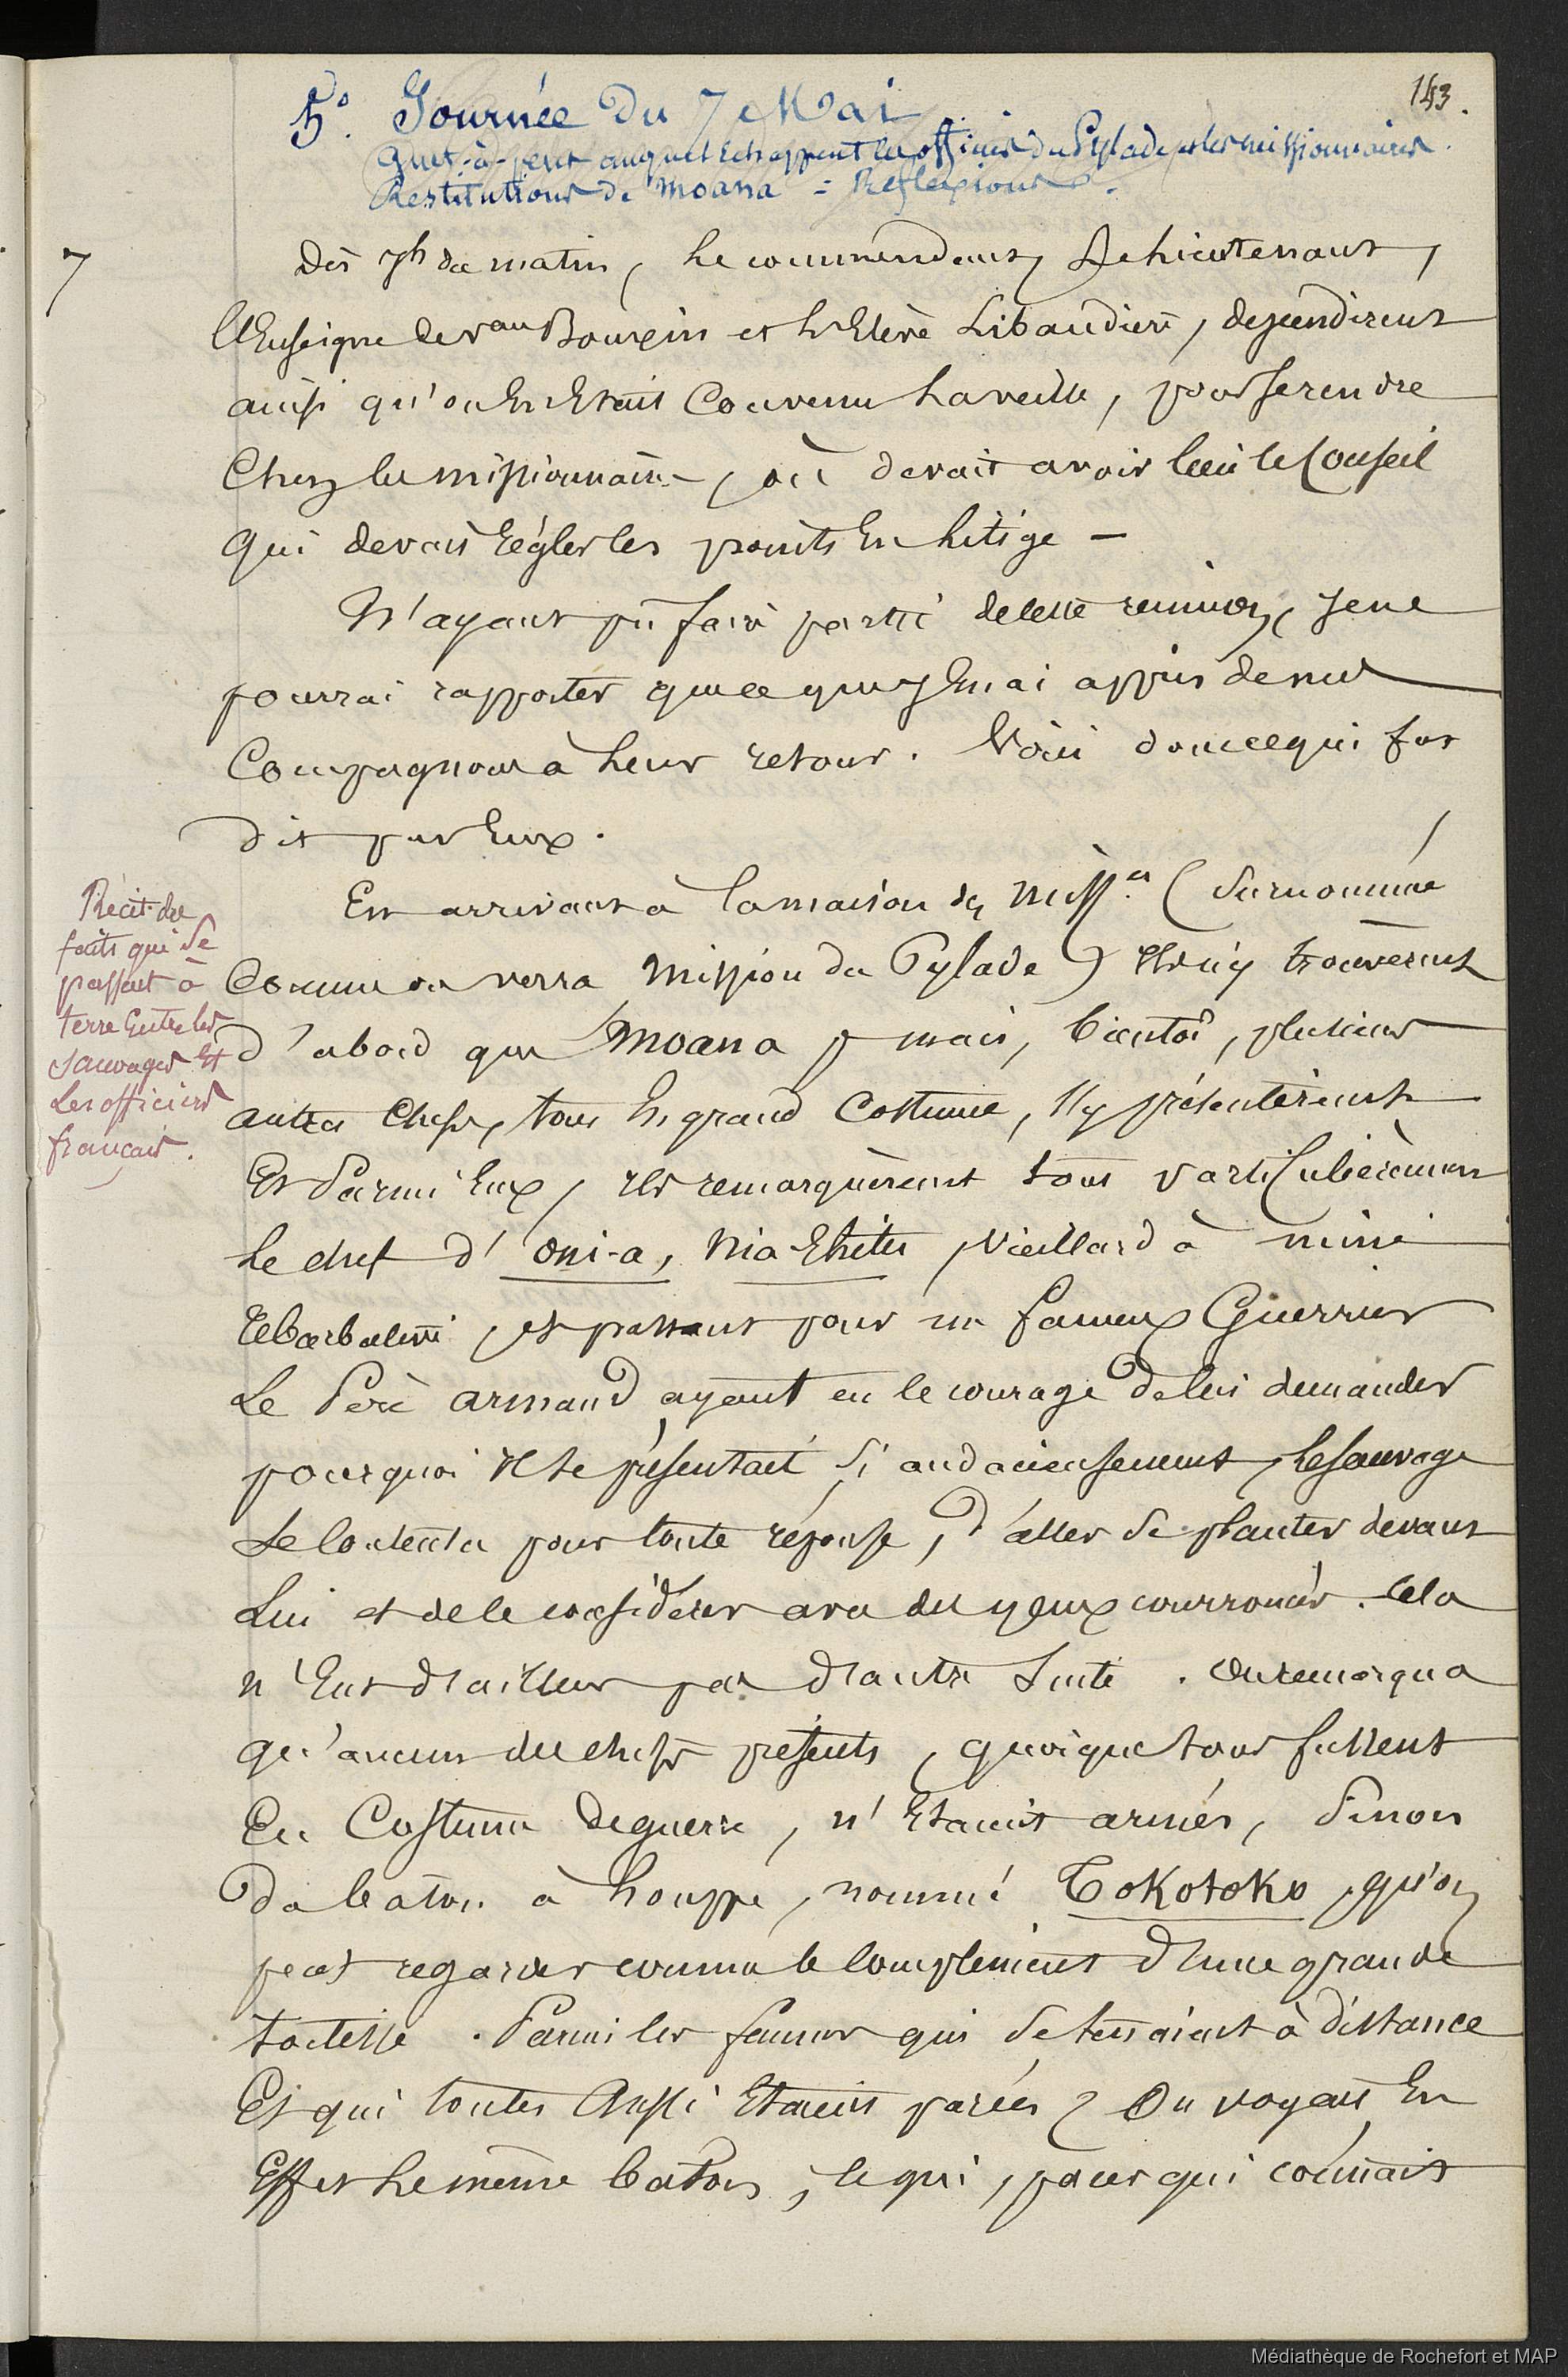 143.
5°. Journée du 7 Mai
Guet-à-pent auquel échappent les officiers du Pylade et les missionnaires.
Restitutions de Moana = Réflexions.
7
Dès 7h du matin, le commendant, Le lieutenant,
l'Enseigne de vau Bourgin et l'Elève Libaudière, descendirent
ainsi qu'on en était convenu la veille, pour se rendre
Chez les missionnaires, où devait avoir lieu le Conseil
qui devait régler les points en litige —
N'ayant pû faire partie de cette réunion, je ne
pourrai rapporter que ce que j'en ai appris de mes
Compagnons à leur retour. Voici donc ce qui fut
dit par Eux.
En arrivant à la maison des Miss.res (surnommée
Comme on verra Mission du Pylade) Ils n'y trouvèrent
d'abord que Moana, mais, bientôt, plusieurs
autres chefs, tous en grand Costume, s'y présentèrent
Et Parmi Eux, ils remarquèrent tout particulièrement
Le chef d'oni-a, Nia-Ehitu, Vieillard à mine
Rébarbative, et passant pour un fameux Guerrier
Le Père Armand ayant eu le courage de lui demander
pourquoi il se présentait si audacieusement, le sauvage
Se contenta pour toute réponse, d'aller se planter devant
Lui et de le considérer avec des yeux courroucés. Cela
n'Eut d'ailleurs pas d'autre suite. On remarqua
qu'aucun des chefs présents, quoique tous fussent
En Costume de guerre, n'Etaient armés, sinon
du bâton à houppe, nommé Tokotoko, qu'on
peut regarder comme le complément d'une grande
toilette. Parmi les femmes qui se tenaient à distance
Et qui toutes Aussi étaient parées, On voyait En
Effet le même bâton, ce qui, pour qui connait
Récit des
faits qui se
passent à
terre Entre les
Sauvages Et
Les officiers
français.
Médiathèque de Rochefort et MAP